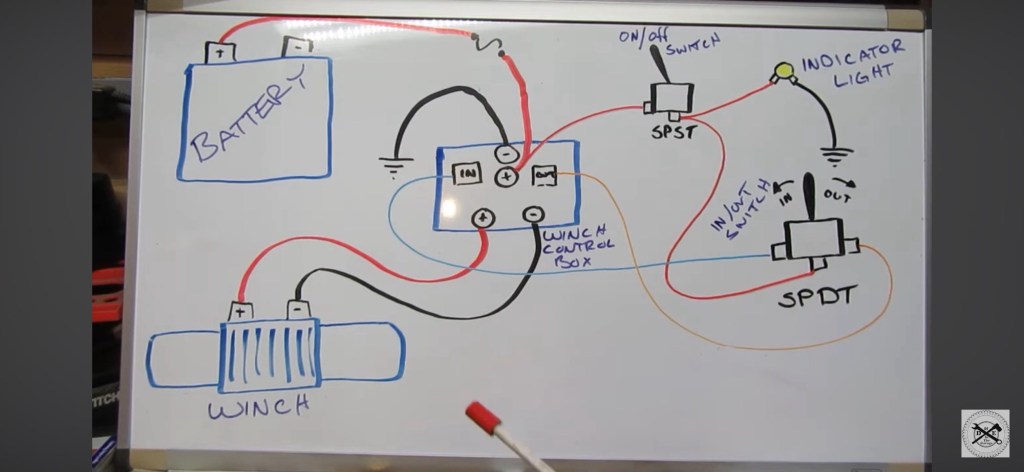 +
-
BATTERY
ON/Off
SWITCH
SPST
INDICATOR
LIGHT
-
IN
+
OUT
+
-
WINCH
CONTROL
BOX
IN/OUT
SWITCH
IN
OUT
SPDT
+
-
WINCH